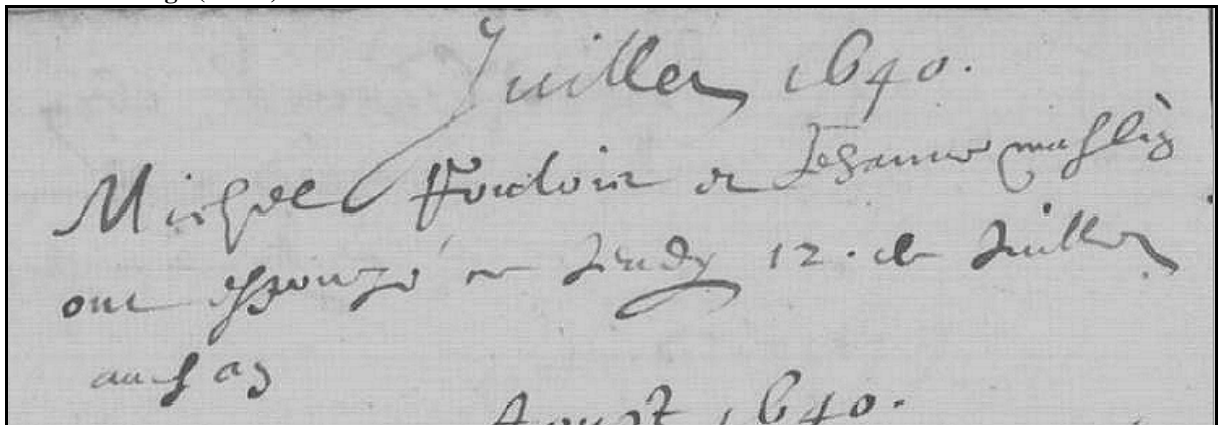 Juillet 1640.
Michel Foudoire et Jehanne
ont espouzé ce Jeudy 12. de Juillet
Aoust 1640.